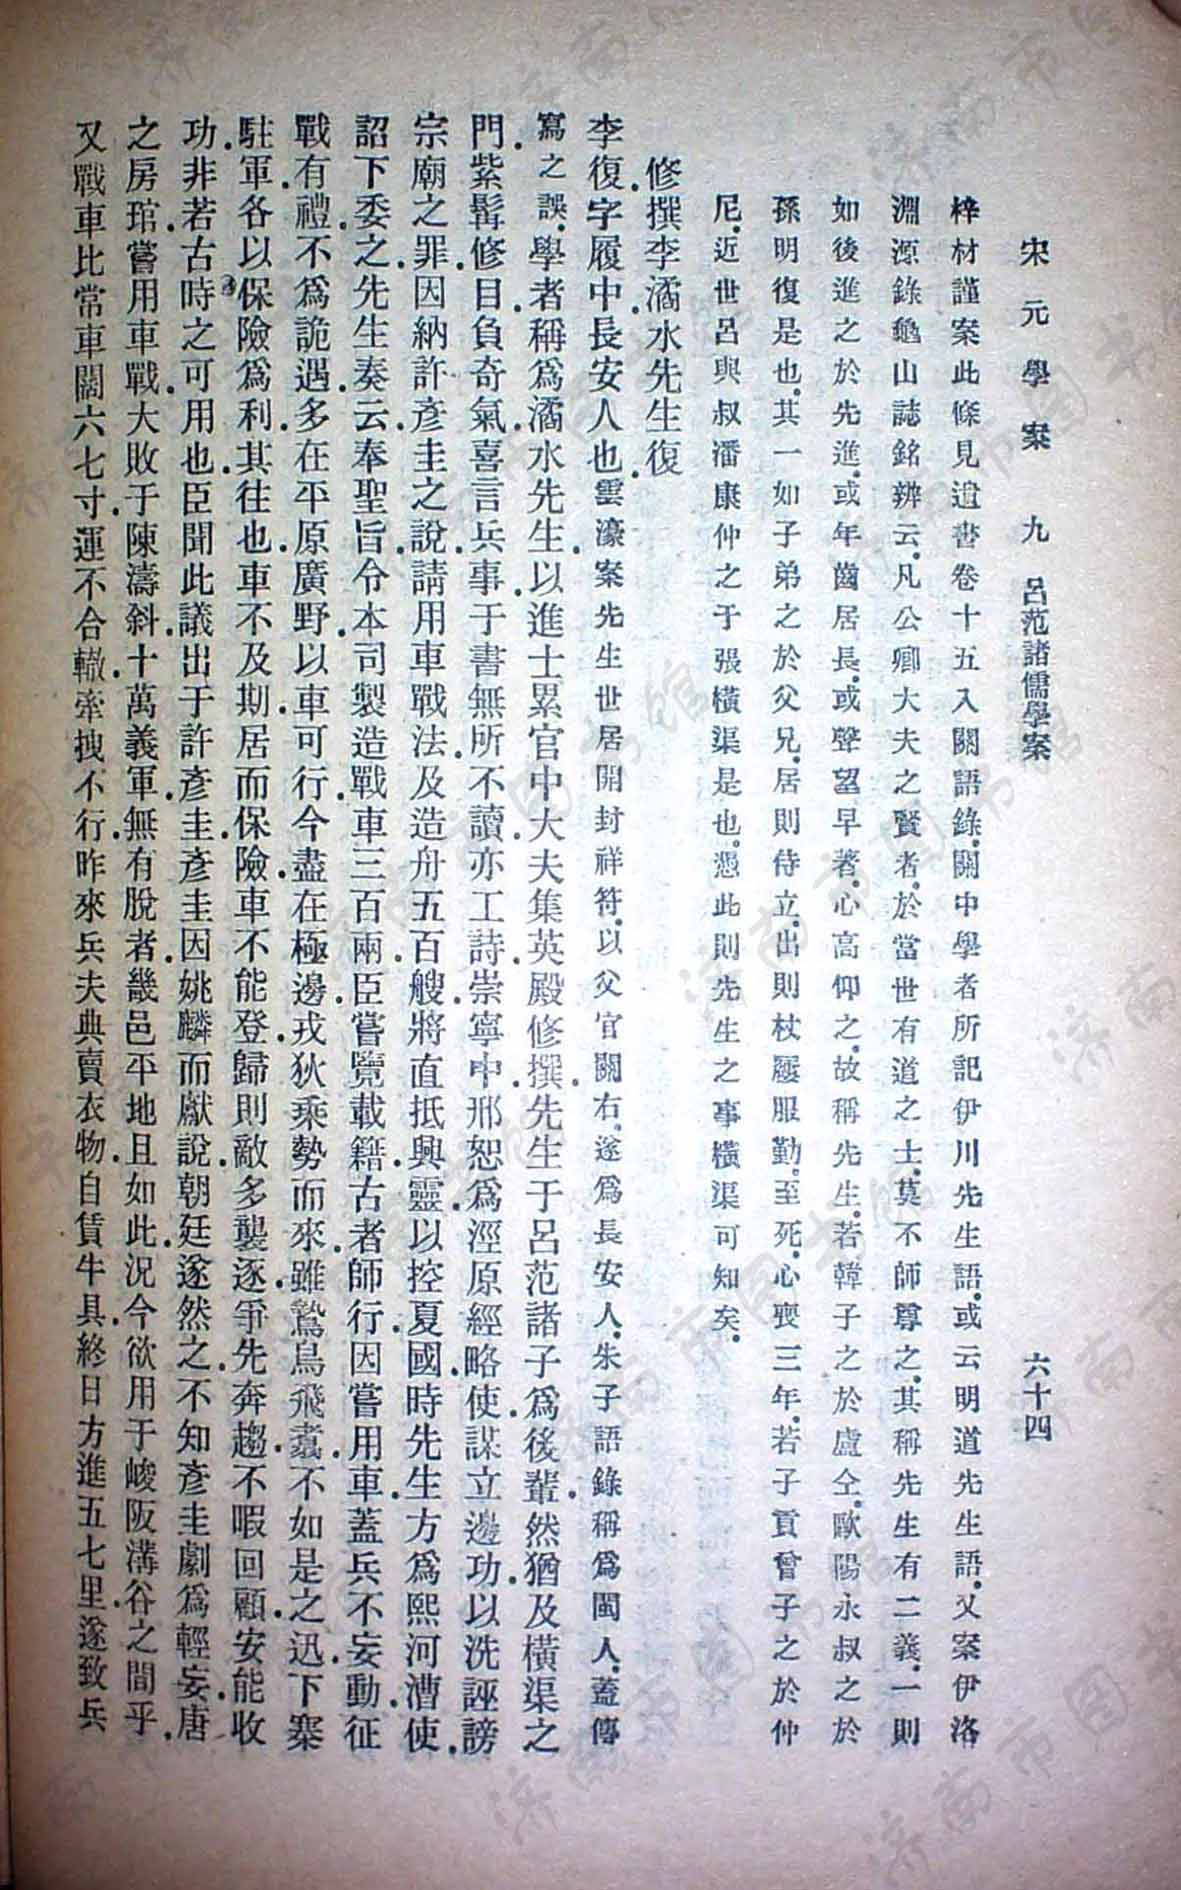 宋元學案　九　呂范諸儒學案　六十四
梓材謹案此條見遺書卷十五入關語錄.關中學者所記伊川先生語.或云明道先生語.又案伊洛
淵源錄龜山誌銘辨云.凡公卿大夫之賢者.於當世有道之士.莫不師尊之.其稱先生有二義.一則
如後進之於先進.或年齒居長.或聲望早著.心高仰之.故稱先生.若韓子之於盧仝.歐陽永叔之於
孫明復是也.其一如子弟之於父兄.居則侍立.出則杖屨服勤.至死.心喪三年.若子貢曾子之於仲
尼.近世呂與叔潘康仲之于張橫渠是也.憑此則先生之事橫渠可知矣.
修撰李潏水先生復
李復.字履中.長安人也.雲濠案先生世居開封祥符.以父官關右.遂爲長安人.朱子語錄稱爲閩人.蓋傳
寫之誤.學者稱爲潏水先生.以進士累官中大夫集英殿修撰.先生于呂范諸子爲後輩.然猶及橫渠之
門.紫髯修目.負奇氣.喜言兵事.于書無所不讀.亦工詩.崇寧中.邢恕爲涇原經略使.謀立邊功.以洗誣謗
宗廟之罪.因納許彥圭之說.請用車戰法.及造舟五百艘.將直抵興靈.以控夏國.時先生方爲熙河漕使.
詔下委之.先生奏云.奉聖旨.令本司製造戰車三百兩.臣嘗覽載籍.古者師行.因嘗用車.蓋兵不妄動.征
戰有禮.不爲詭遇.多在平原廣野.以車可行.今盡在極邊.戎狄乘勢而來.雖鷙鳥飛翥.不如是之迅.下寨
駐軍.各以保險爲利.其往也.車不及期.居而保險.車不能登.歸則敵多襲逐.爭先奔趨.不暇回顧.安能收
功.非若古時之可用也.臣聞此議出于許彥圭.彥圭因姚麟而獻說.朝廷遂然之.不知彥圭劇爲輕妄.唐
之房琯.嘗用車戰.大敗于陳濤斜.十萬義軍.無有脫者.畿邑平地且如此.況今欲用于峻阪溝谷之間乎.
又戰車比常車闊六七寸.運不合轍.牽拽不行.昨來兵夫典賣衣物.自賃牛具.終日方進五七里.遂致兵